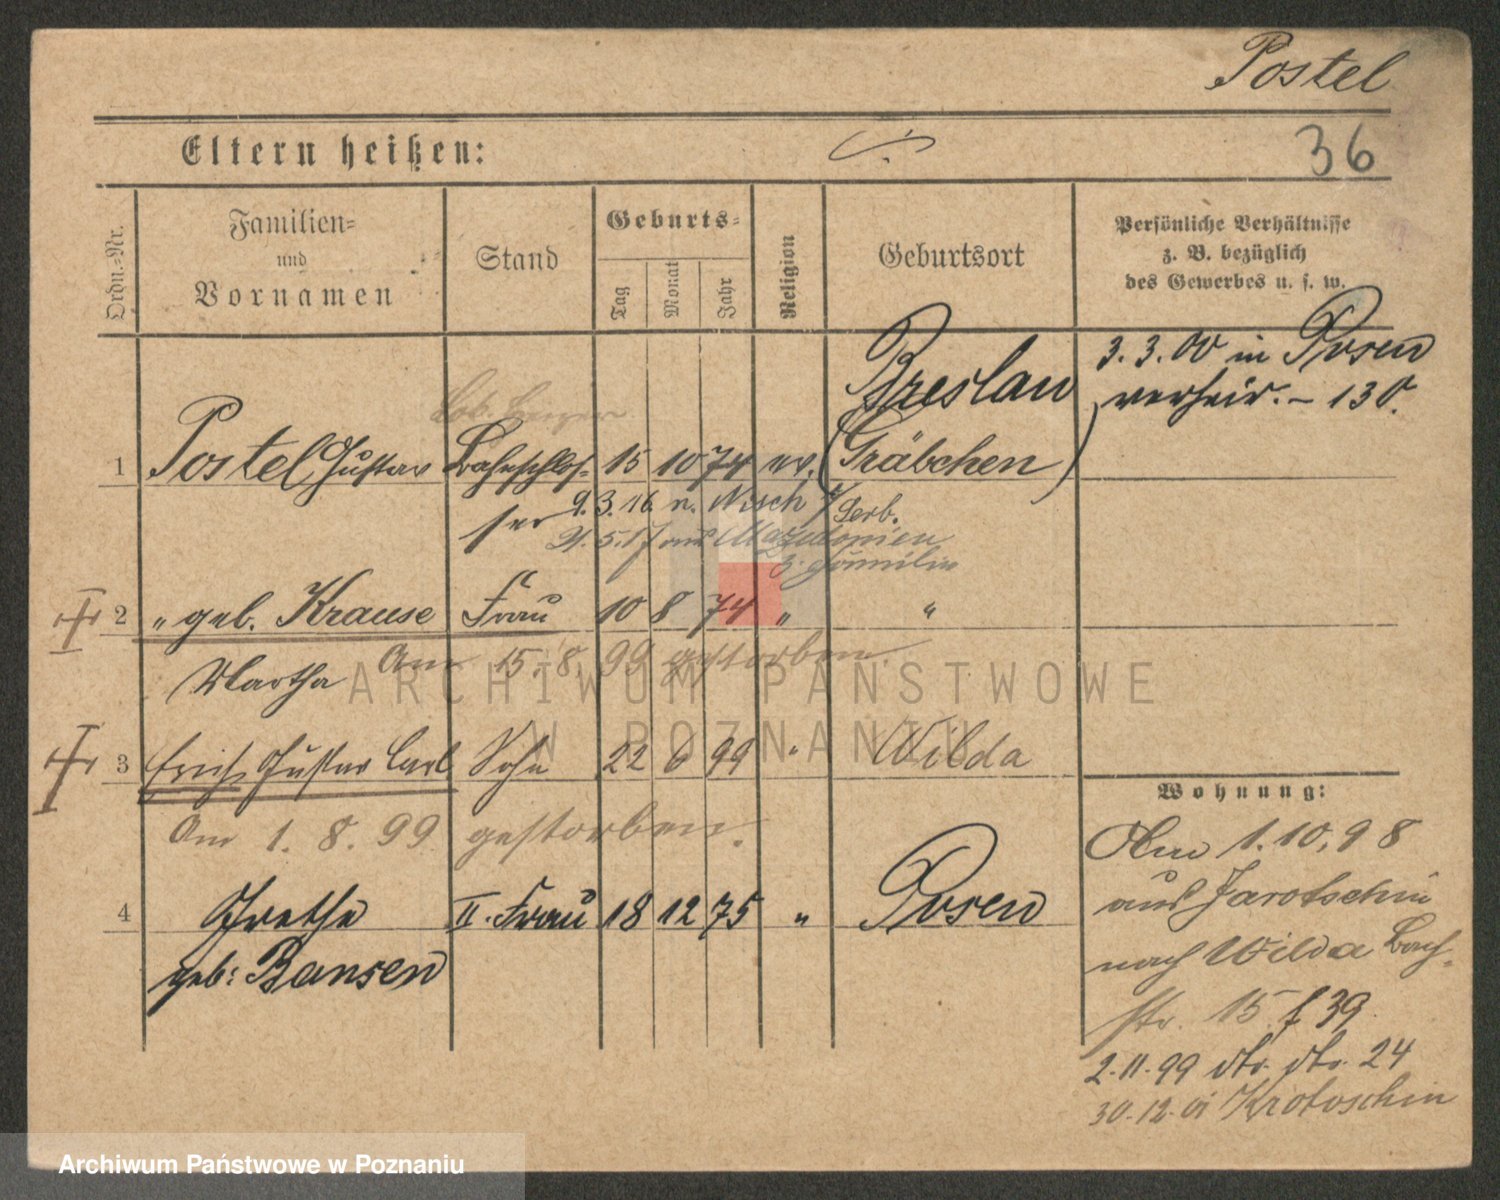 Postel
Eltern heißen:
36
Ordn.-Nr.
Familien-
und
Vornamen
Stand
Geburts-
Tag
Monat
Jahr
Religion
Geburtsort
Persönliche Verhältnisse
z. B. bezüglich
des Gewerbes u. s. w.
3. 3. 00 in Posen
verheir. – 130.
Breslau
1 Postel, Gustav Bahnschlos- 15 10 74 ev. (Gräbchen)
ser 9. 3. 16 n. Nisch i/Serb.
5. 17 aus Mazedonien
z. Familie
2 " geb. Krause Frau 10 8 74 " "
Martha Am 15. 8. 99 gestorben.
3 Erich Gustav Carl Sohn 22 6 99 " Wilda
Am 1. 8. 99 gestorben.
4 Grethe II. Frau 18 12 75 " Posen
geb: Bansen
Wohnung:
Am 1. 10. 98
aus Jarotschin
nach Wilda Bach-
str. 15 f 39
2. 11. 99 dto. dto. 24
30. 12. 01 Krotoschin
ARCHIWUM PAŃSTWOWE
W POZNANIU
Archiwum Państwowe w Poznaniu